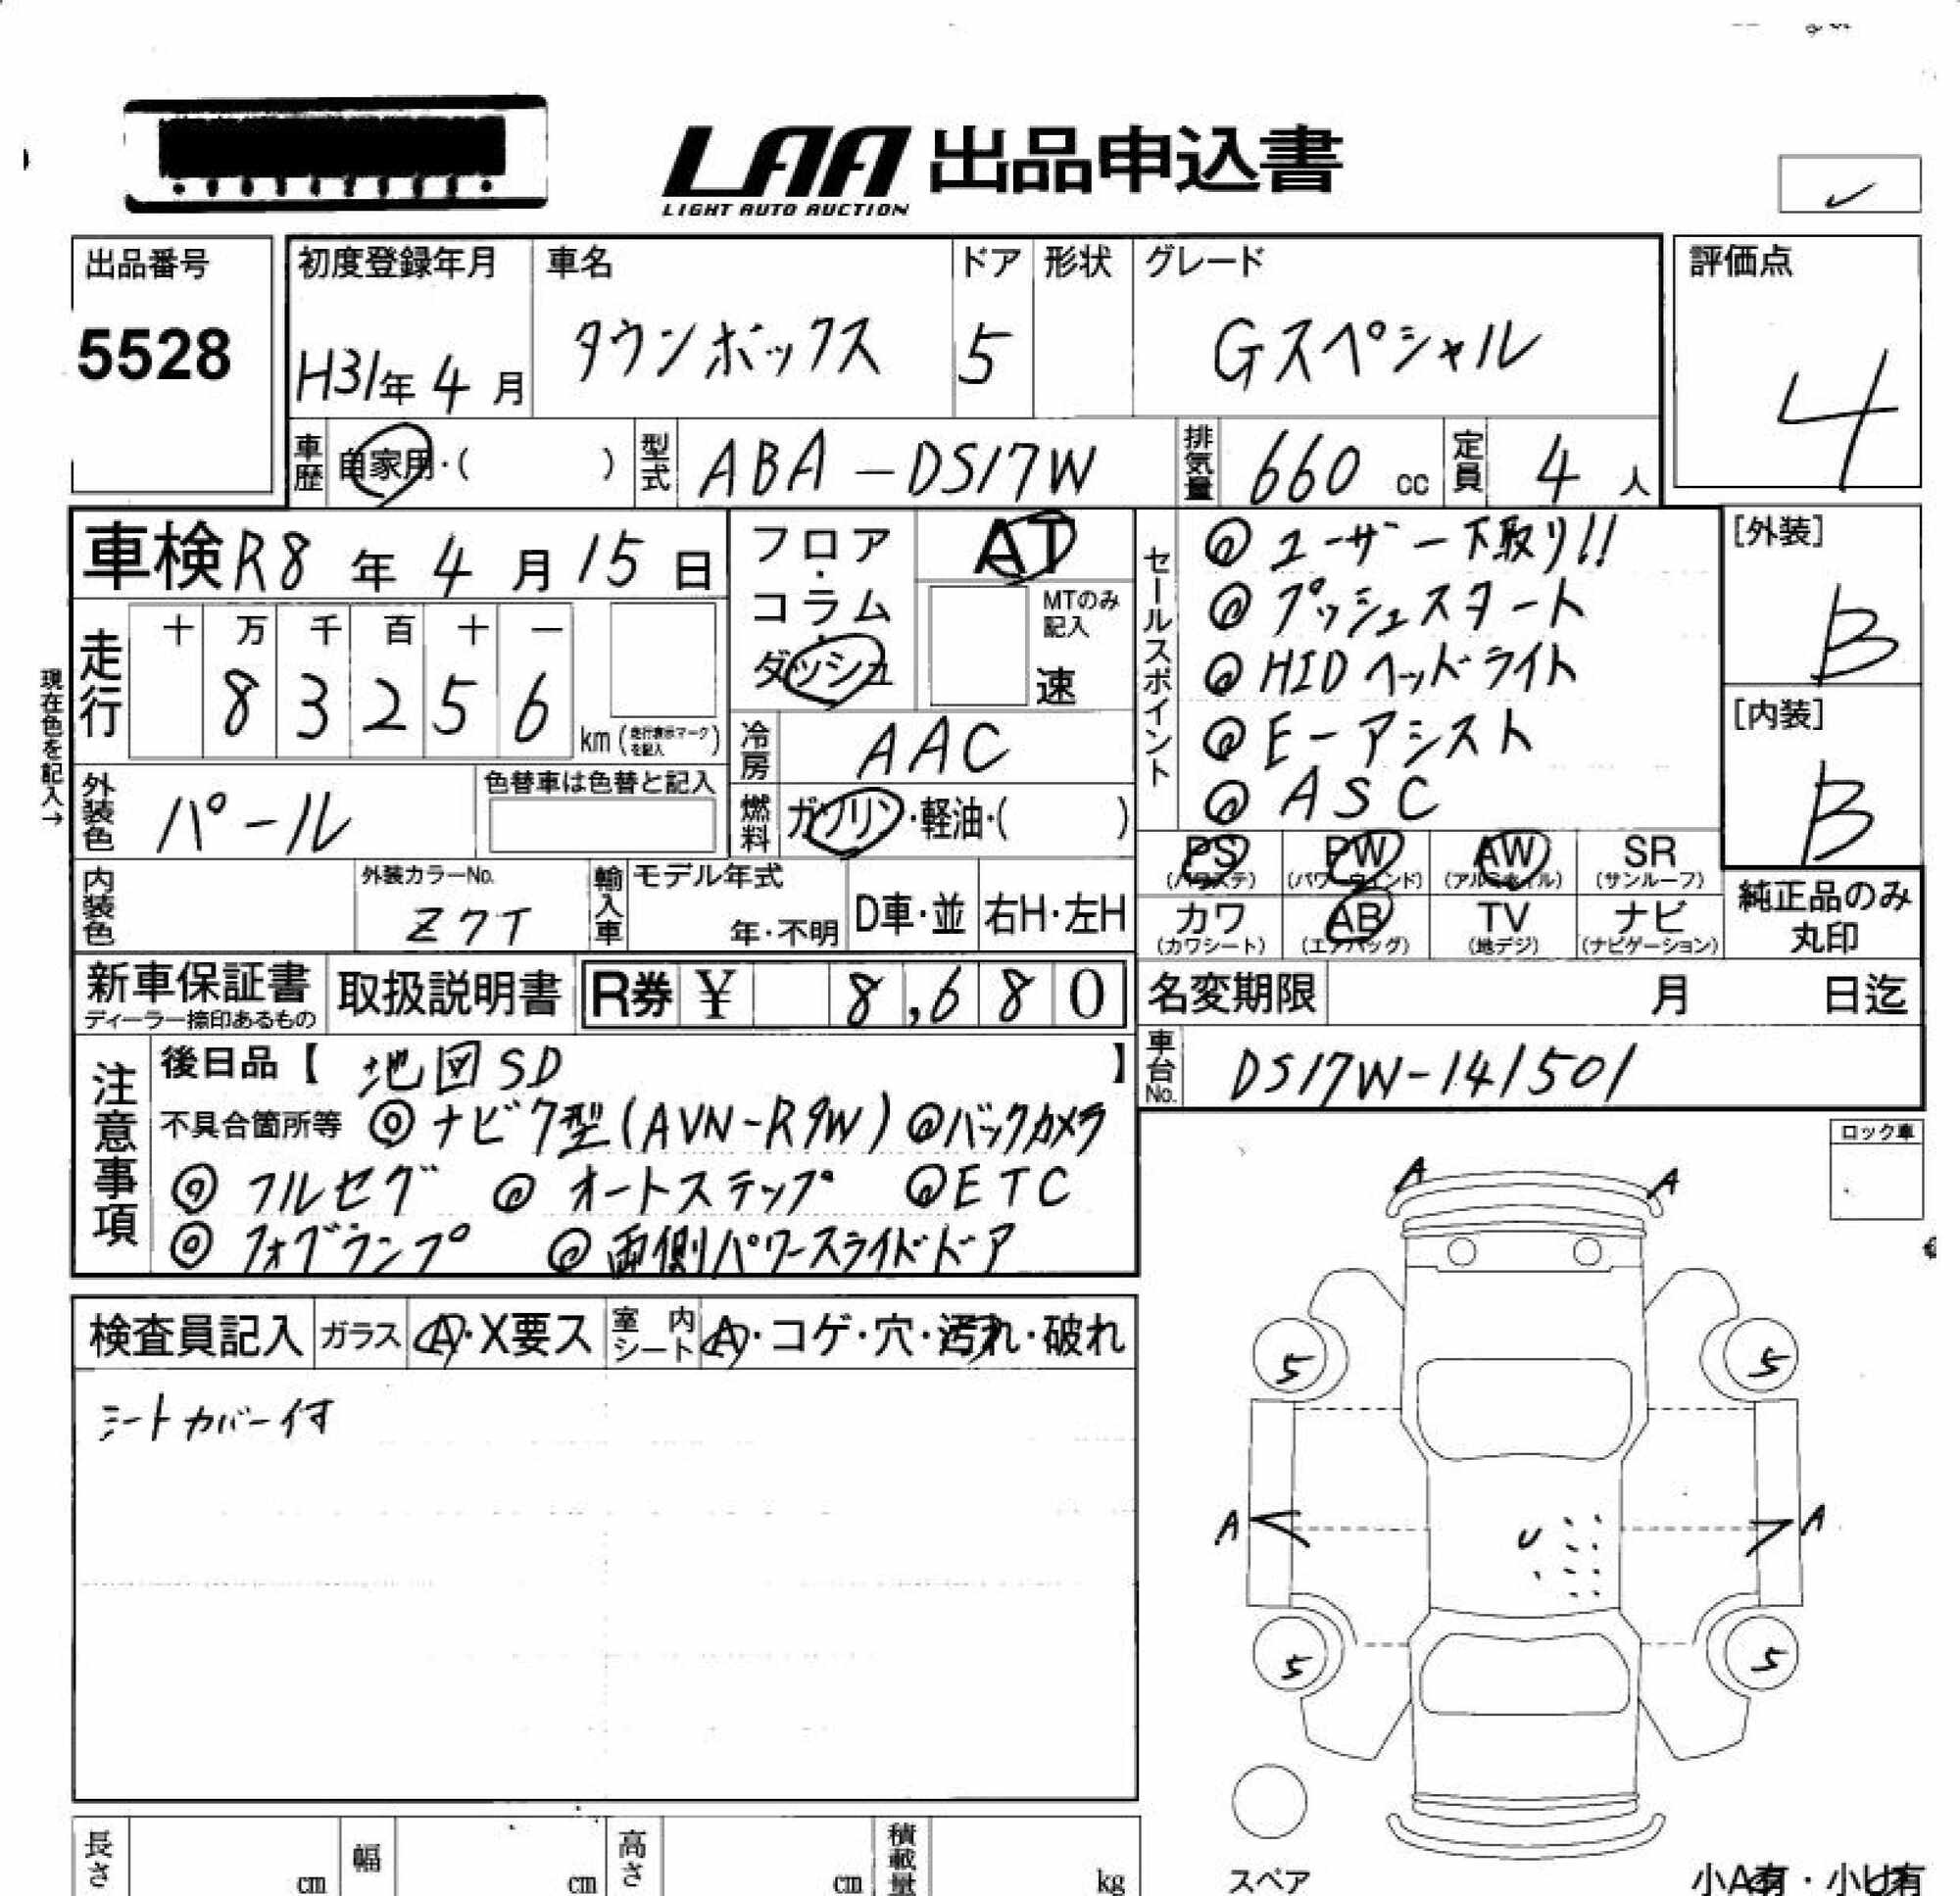 LAA 出品申込書
LIGHT AUTO AUCTION
出品番号
5528
初度登録年月
H31年 4月
車名
タウンボックス
ドア
5
形状
グレード
Gスペシャル
評価点
4
車歴 自家用・( )
型式 ABA-DS17W
排気量 660 cc
定員 4 人
車検 R8 年 4 月 15 日
フロア・コラム・ダッシュ
AT
MTのみ記入
速
現在色を記入→
走行
十 万 千 百 十 一
8 3 2 5 6
km (走行表示マークを記入)
冷房 AAC
燃料 ガソリン・軽油・( )
外装色 パール
色替車は色替と記入
内装色
外装カラーNo.
Z7T
輸入車
モデル年式
年・不明
D車・並
右H・左H
セールスポイント
◎ ユーザー下取り!!
◎ プッシュスタート
◎ HIDヘッドライト
◎ E-アシスト
◎ ASC
[外装]
B
[内装]
B
PS (パワステ)
PW (パワーウィンド)
AW (アルミホイル)
SR (サンルーフ)
カワ (カワシート)
AB (エアバッグ)
TV (地デジ)
ナビ (ナビゲーション)
純正品のみ丸印
新車保証書
ディーラー捺印あるもの
取扱説明書
R券 ¥ 8,680
名変期限 月 日迄
車台No. DS17W-141501
注意事項
後日品【 地図SD 】
不具合箇所等 ◎ナビ7型(AVN-R9W) ◎バックカメラ
◎ フルセグ ◎ オートステップ ◎ETC
◎ フォグランプ ◎両側パワースライドドア
ロック車
検査員記入
ガラス A・X要ス
室内シート A・コゲ・穴・汚れ・破れ
シートカバー付
A A
5 5
A A
U
5 5
スペア
小A有・小U有
長さ cm
幅 cm
高さ cm
積載量 kg